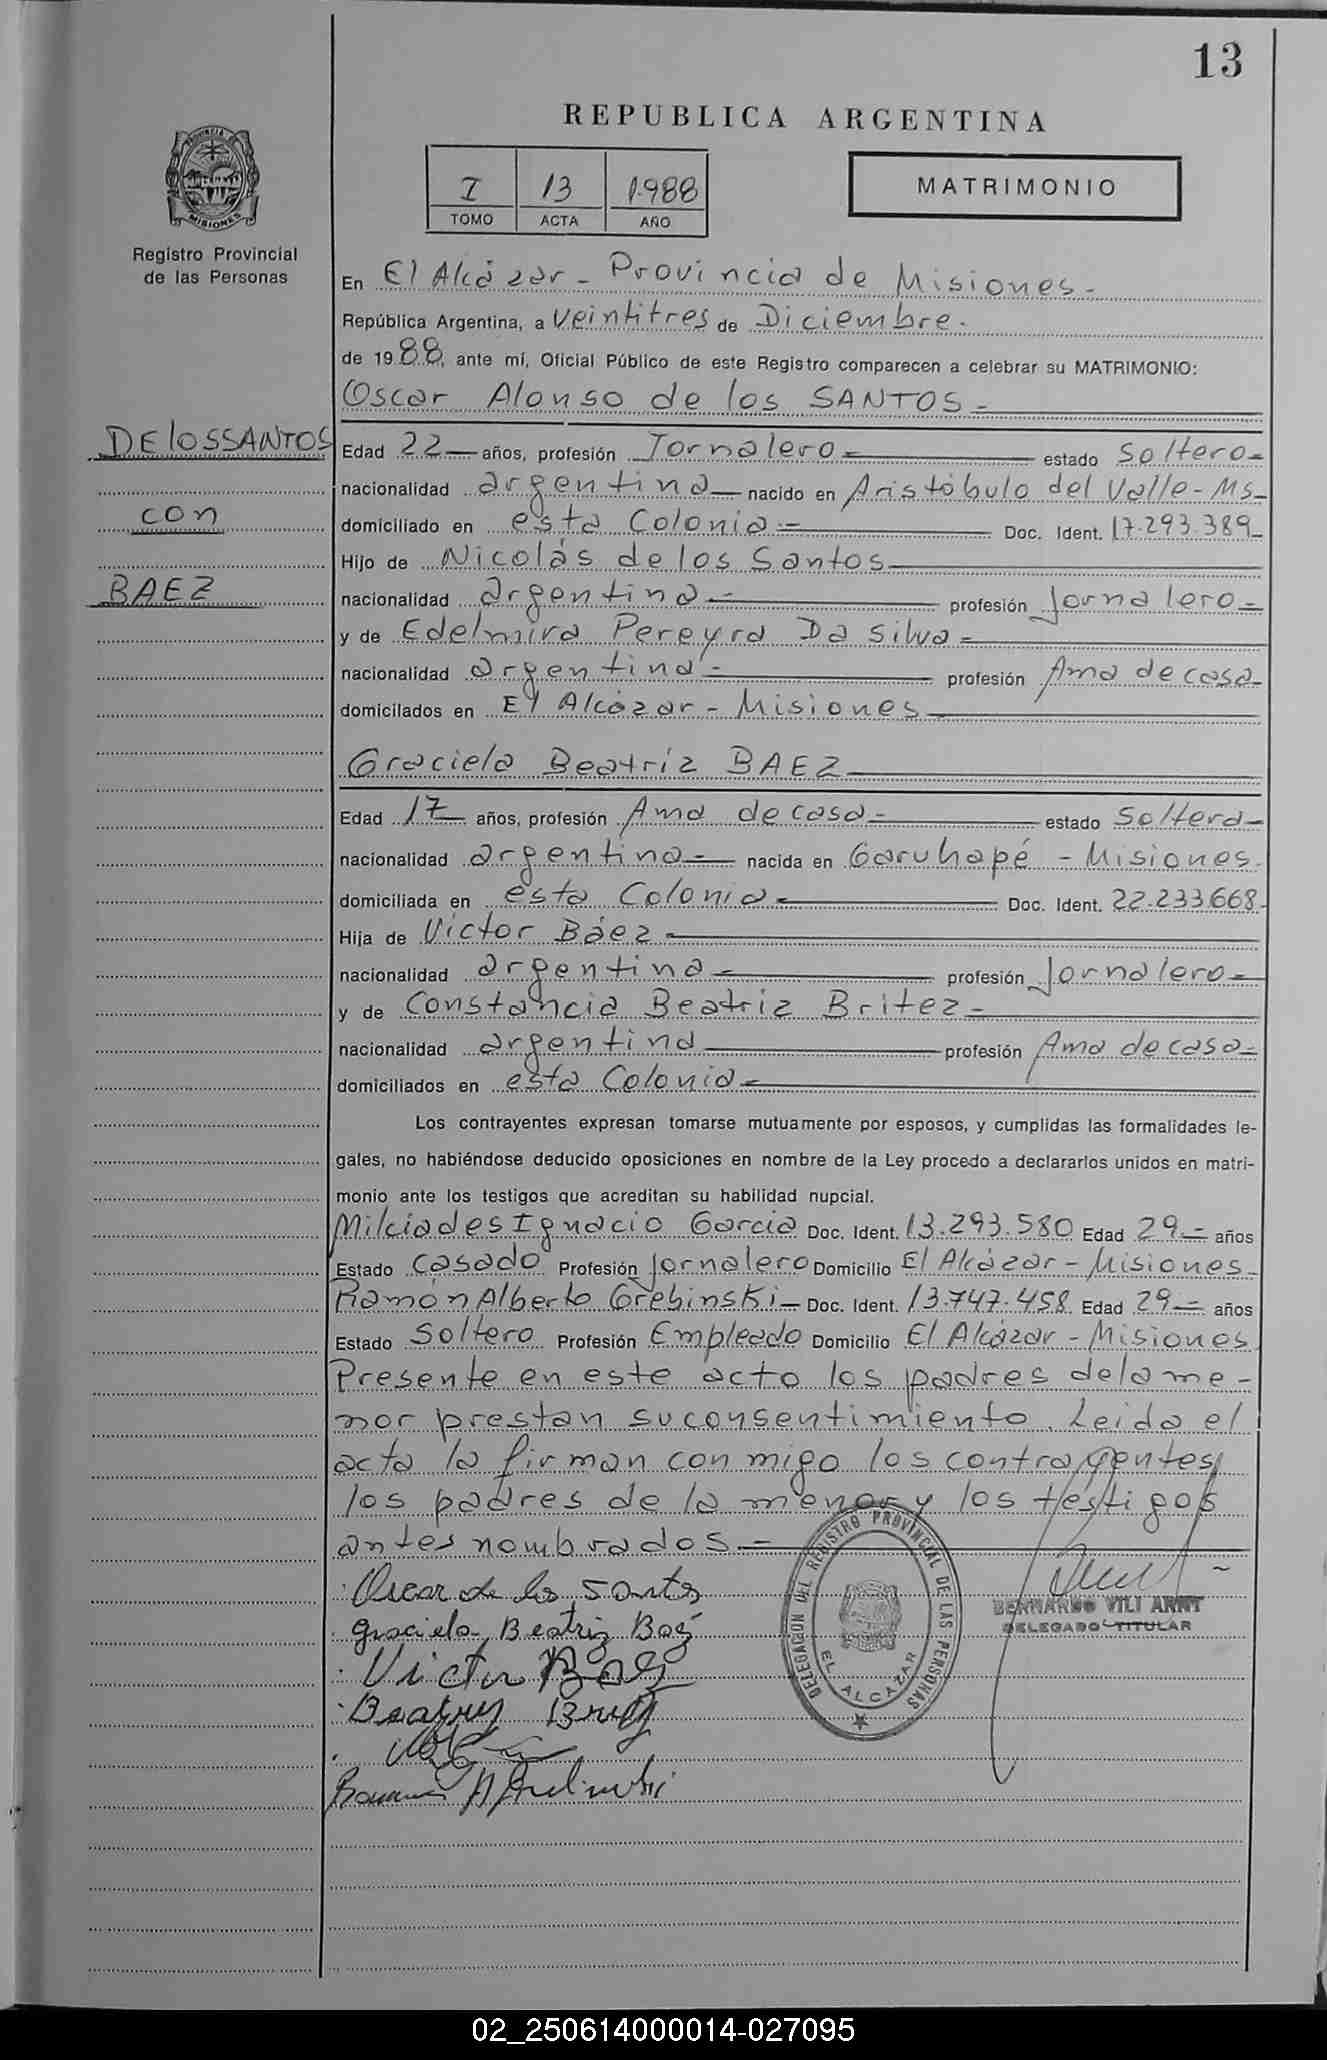 13
REPUBLICA ARGENTINA
PROVINCIA DE MISIONES
Registro Provincial
de las Personas
I 13 1988
TOMO ACTA AÑO
MATRIMONIO
En El Alcázar - Provincia de Misiones -
República Argentina, a Veintitres de Diciembre.
de 1988, ante mí, Oficial Público de este Registro comparecen a celebrar su MATRIMONIO:
Oscar Alonso de los SANTOS -
DE lOS SANTOS
con
BAEZ
Edad 22 años, profesión Jornalero - estado Soltero -
nacionalidad argentina nacido en Aristóbulo del Valle - Ms -
domiciliado en esta Colonia - Doc. Ident. 17.293.389
Hijo de Nicolás de los Santos
nacionalidad argentina - profesión Jornalero -
y de Edelmira Pereyra Da Silva -
nacionalidad argentina - profesión Ama de casa
domicilados en El Alcázar - Misiones
Graciela Beatriz BAEZ
Edad 17 años, profesión Ama de casa - estado Soltera -
nacionalidad argentina - nacida en Garuhapé - Misiones.
domiciliada en esta Colonia - Doc. Ident. 22.233.668.
Hija de Víctor Báez -
nacionalidad argentina - profesión Jornalero -
y de Constancia Beatriz Britez -
nacionalidad argentina profesión Ama de casa -
domiciliados en esta Colonia -
Los contrayentes expresan tomarse mutuamente por esposos, y cumplidas las formalidades le-
gales, no habiéndose deducido oposiciones en nombre de la Ley procedo a declararlos unidos en matri-
monio ante los testigos que acreditan su habilidad nupcial.
Milciades Ignacio Garcia Doc. Ident. 13.293.580 Edad 29 - años
Estado Casado Profesión Jornalero Domicilio El Alcázar - Misiones -
Ramón Alberto Grebinski - Doc. Ident. 13.747.458 Edad 29 - años
Estado Soltero Profesión Empleado Domicilio El Alcázar - Misiones
Presente en este acto los padres de la me -
nor prestan su consentimiento. Leida el
acta la firman conmigo los contrayentes,
los padres de la menor y los testigos
antes nombrados. -
Oscar de los Santos
Graciela Beatriz Baez
Victor Baez
DELEGACION DEL REGISTRO PROVINCIAL DE LAS PERSONAS
EL ALCAZAR
BERNARDO VILI ARNT
DELEGADO TITULAR
02_250614000014-027095